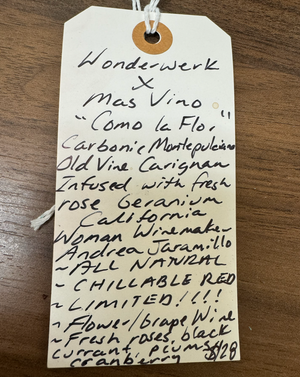 Wonderwerk
X
Mas Vino
"Como la Flor"
Carbonic Montepulciano
Old Vine Carignan
Infused with fresh
rose Geranium
California
Woman Winemaker
Andrea Jaramillo
~ALL NATURAL
~CHILLABLE RED
~LIMITED!!!!
~Flower/Grape Wine
~Fresh roses, black
currant, plums,
cranberry $28